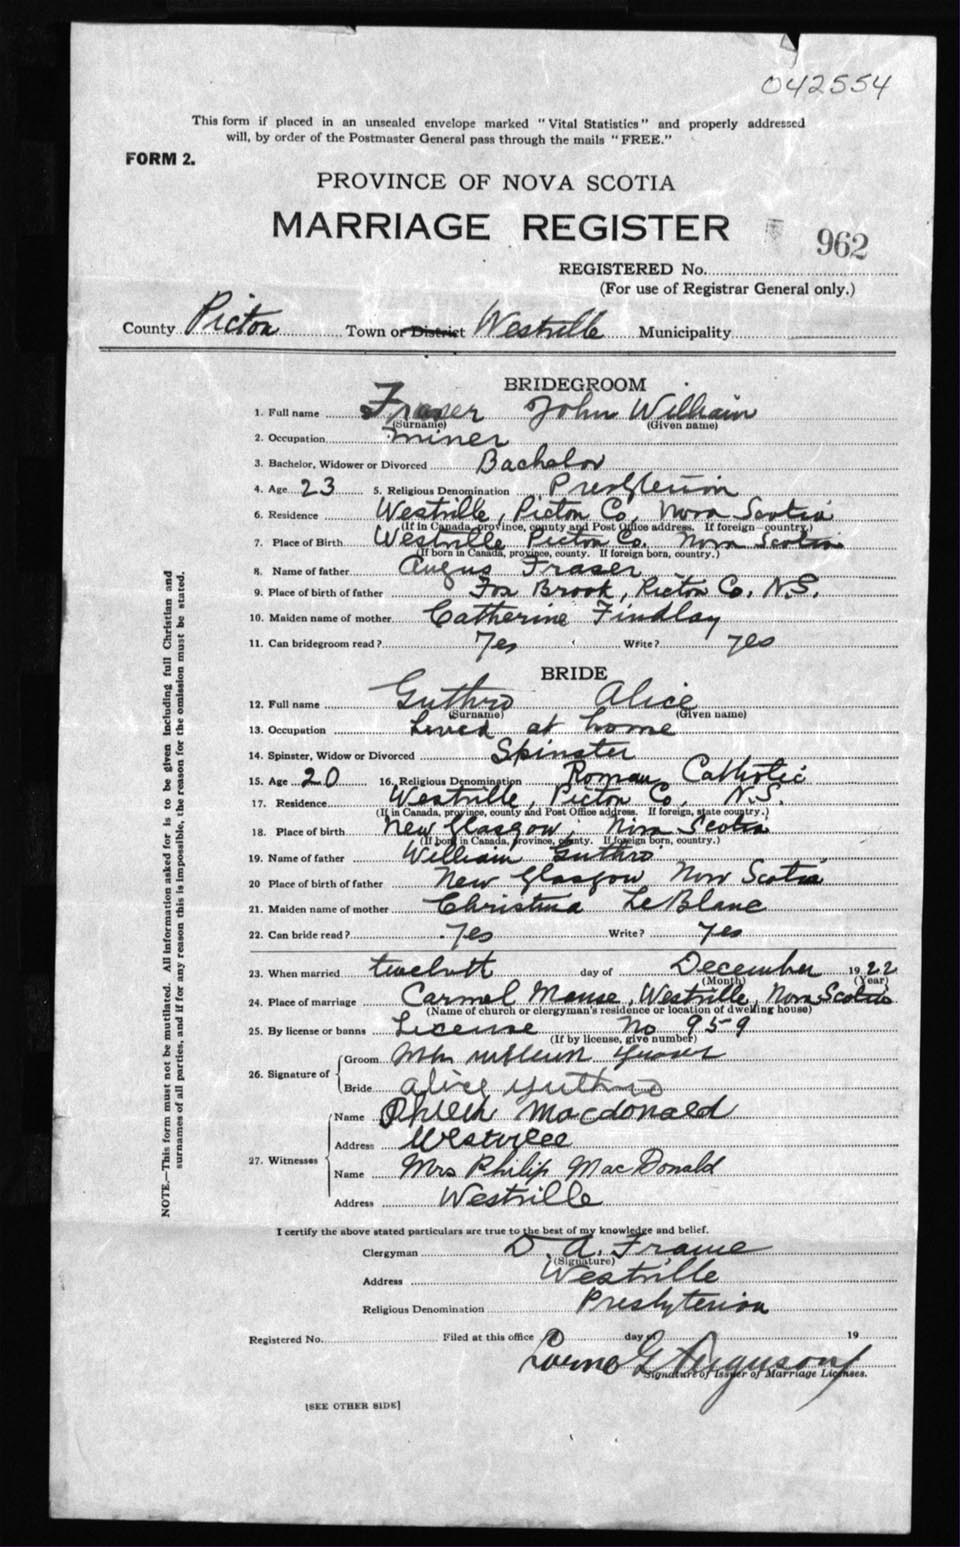 042554
This form if placed in an unsealed envelope marked "Vital Statistics" and properly addressed
will, by order of the Postmaster General pass through the mails "FREE."
FORM 2.
PROVINCE OF NOVA SCOTIA
MARRIAGE REGISTER
962
REGISTERED No.
(For use of Registrar General only.)
County Pictou Town or District Westville Municipality
BRIDEGROOM
1. Full name Fraser John William
(Surname) (Given name)
2. Occupation miner
3. Bachelor, Widower or Divorced Bachelor
4. Age 23 5. Religious Denomination Presbyterian
6. Residence Westville, Pictou Co, Nova Scotia
(If in Canada, province, county and Post Office address. If foreign country.)
7. Place of Birth Westville Pictou Co. Nova Scotia
(If born in Canada, province, county. If foreign born, country.)
8. Name of father Angus Fraser
9. Place of birth of father Fox Brook, Pictou Co, N.S.
10. Maiden name of mother Catherine Findlay
11. Can bridegroom read? Yes Write? yes
BRIDE
12. Full name Guthro Alice
(Surname) (Given name)
13. Occupation Lived at home
14. Spinster, Widow or Divorced Spinster
15. Age 20 16. Religious Denomination Roman Catholic
17. Residence Westville, Pictou Co, N.S.
(If in Canada, province, county and Post Office address. If foreign, state country.)
18. Place of birth New Glasgow, Nova Scotia
(If born in Canada, province, county. If foreign born, country.)
19. Name of father William Guthro
20 Place of birth of father New Glasgow Nova Scotia
21. Maiden name of mother Christina LeBlanc
22. Can bride read? Yes Write? Yes
23. When married twelfth day of December 1922
(Month) (Year)
24. Place of marriage Carmel Manse, Westville, Nova Scotia
(Name of church or clergyman's residence or location of dwelling house)
25. By license or banns License No 959
(If by license, give number)
26. Signature of
Groom John William Fraser
Bride Alice Guthro
27. Witnesses
Name Philip Macdonald
Address Westville
Name Mrs Philip MacDonald
Address Westville
I certify the above stated particulars are true to the best of my knowledge and belief.
Clergyman D. A. Frame
(Signature)
Address Westville
Religious Denomination Presbyterian
Registered No. Filed at this office day of 19
Lorne G Ferguson
Signature of Issuer of Marriage Licenses.
[SEE OTHER SIDE]
NOTE.—This form must not be mutilated. All information asked for is to be given including full Christian and
surnames of all parties, and if for any reason this is impossible, the reason for the omission must be stated.